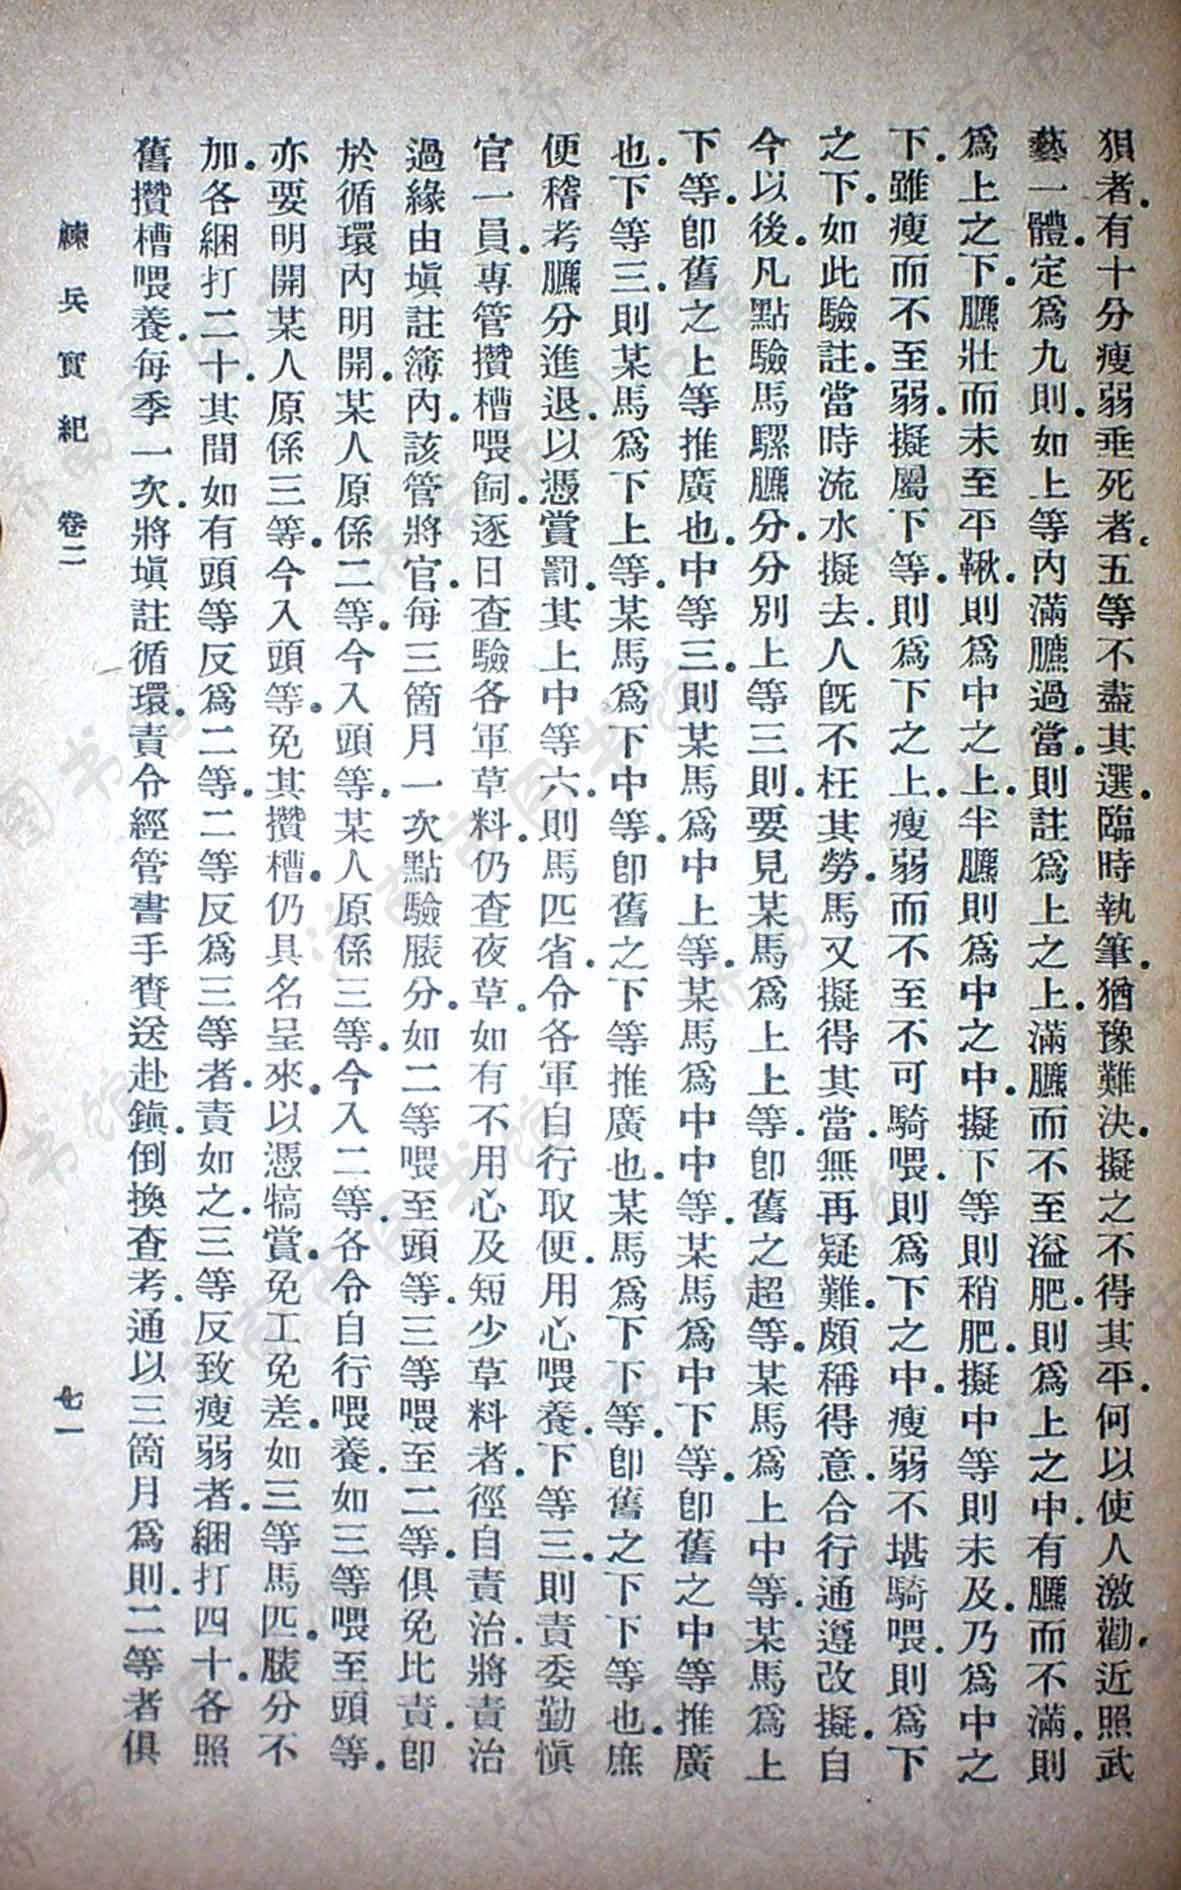 狽者。有十分瘦弱垂死者。五等不盡其選。臨時執筆。猶豫難決。擬之不得其平。何以使人激勸。近照武
藝一體。定爲九則。如上等內滿臕過當。則註爲上之上。滿臕而不至溢肥。則爲上之中。有臕而不滿。則
爲上之下。臕壯而未至平鞦。則爲中之上。半臕則爲中之中。擬下等則稍肥。擬中等則未及。乃爲中之
下。雖瘦而不至弱。擬屬下等。則爲下之上。瘦弱而不至不可騎喂。則爲下之中。瘦弱不堪騎喂。則爲下
之下。如此驗註。當時流水擬去。人旣不枉其勞。馬又擬得其當。無再疑難。頗稱得意。合行通遵改擬。自
今以後。凡點驗馬騾臕分。分別上等三則。要見某馬爲上上等。卽舊之超等。某馬爲上中等。某馬爲上
下等。卽舊之上等推廣也。中等三。則某馬爲中上等。某馬爲中中等。某馬爲中下等。卽舊之中等推廣
也。下等三。則某馬爲下上等。某馬爲下中等。卽舊之下等推廣也。某馬爲下下等。卽舊之下下等也。庶
便稽考臕分進退。以憑賞罰。其上中等六。則馬匹省。令各軍自行取便。用心喂養。下等三。則責委勤愼
官一員。專管攢槽喂飼。逐日查驗各軍草料。仍查夜草。如有不用心及短少草料者。徑自責治。將責治
過緣由塡註簿內。該管將官。每三箇月一次點驗臕分。如二等喂至頭等。三等喂至二等。俱免比責。卽
於循環內明開。某人原係二等。今入頭等。某人原係三等。今入二等。各令自行喂養。如三等喂至頭等。
亦要明開某人原係三等。今入頭等。免其攢槽。仍具名呈來。以憑犒賞。免工免差。如三等馬匹。臕分不
加。各綑打二十。其間如有頭等反爲二等。二等反爲三等者。責如之。三等反致瘦弱者。綑打四十。各照
舊攢槽喂養。每季一次。將塡註循環。責令經管書手賚送赴鎭。倒換查考。通以三箇月爲則。二等者俱
練兵實紀 卷二
七一